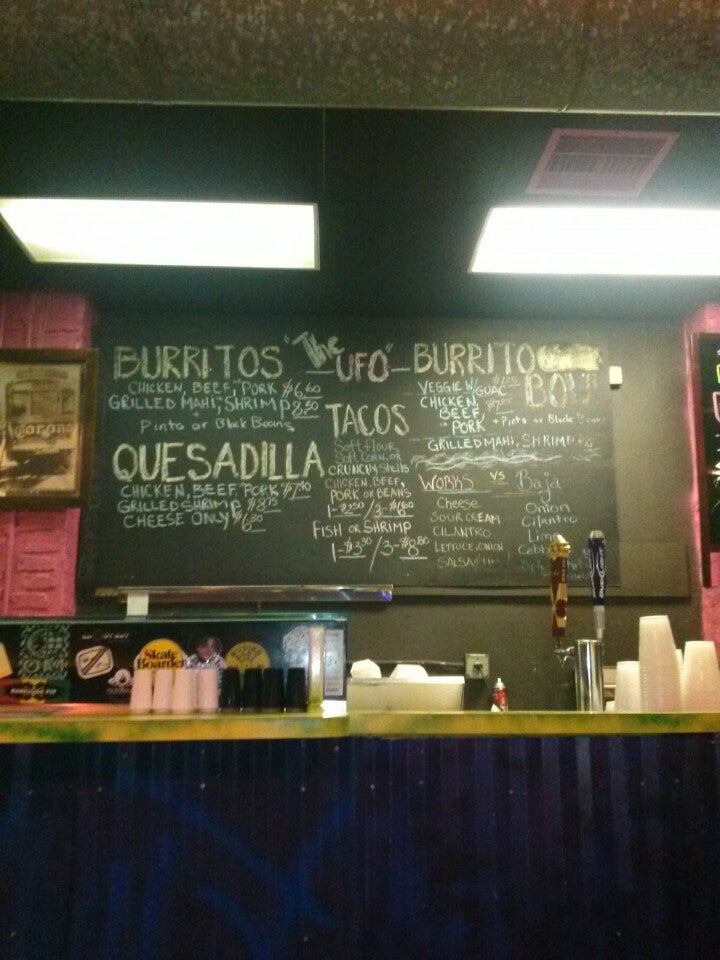 BURRITOS
CHICKEN, BEEF, PORK $6.60
GRILLED MAHI, SHRIMP 8.50
+
Pinto or Black Beans
QUESADILLA
CHICKEN, BEEF, PORK
GRILLED SHRIMP $8.75
CHEESE ONLY
"The UFO"
TACOS
Soft flour
Soft corn, or
CRUNCHY Shells
CHICKEN, BEEF,
PORK OR BEANS
FISH OR SHRIMP
1-$3.30/3-$8.80
BURRITO
BOWL
VEGGIE W/GUAC
CHICKEN,
BEEF,
PORK + Pinto or Black Beans
GRILLED MAHI, SHRIMP
WORKS VS Baja
Cheese
SOUR CREAM
CILANTRO
LETTUCE, ONION
SALSA
Onion
Cilantro
Lime
Corona
Skate
Boarder